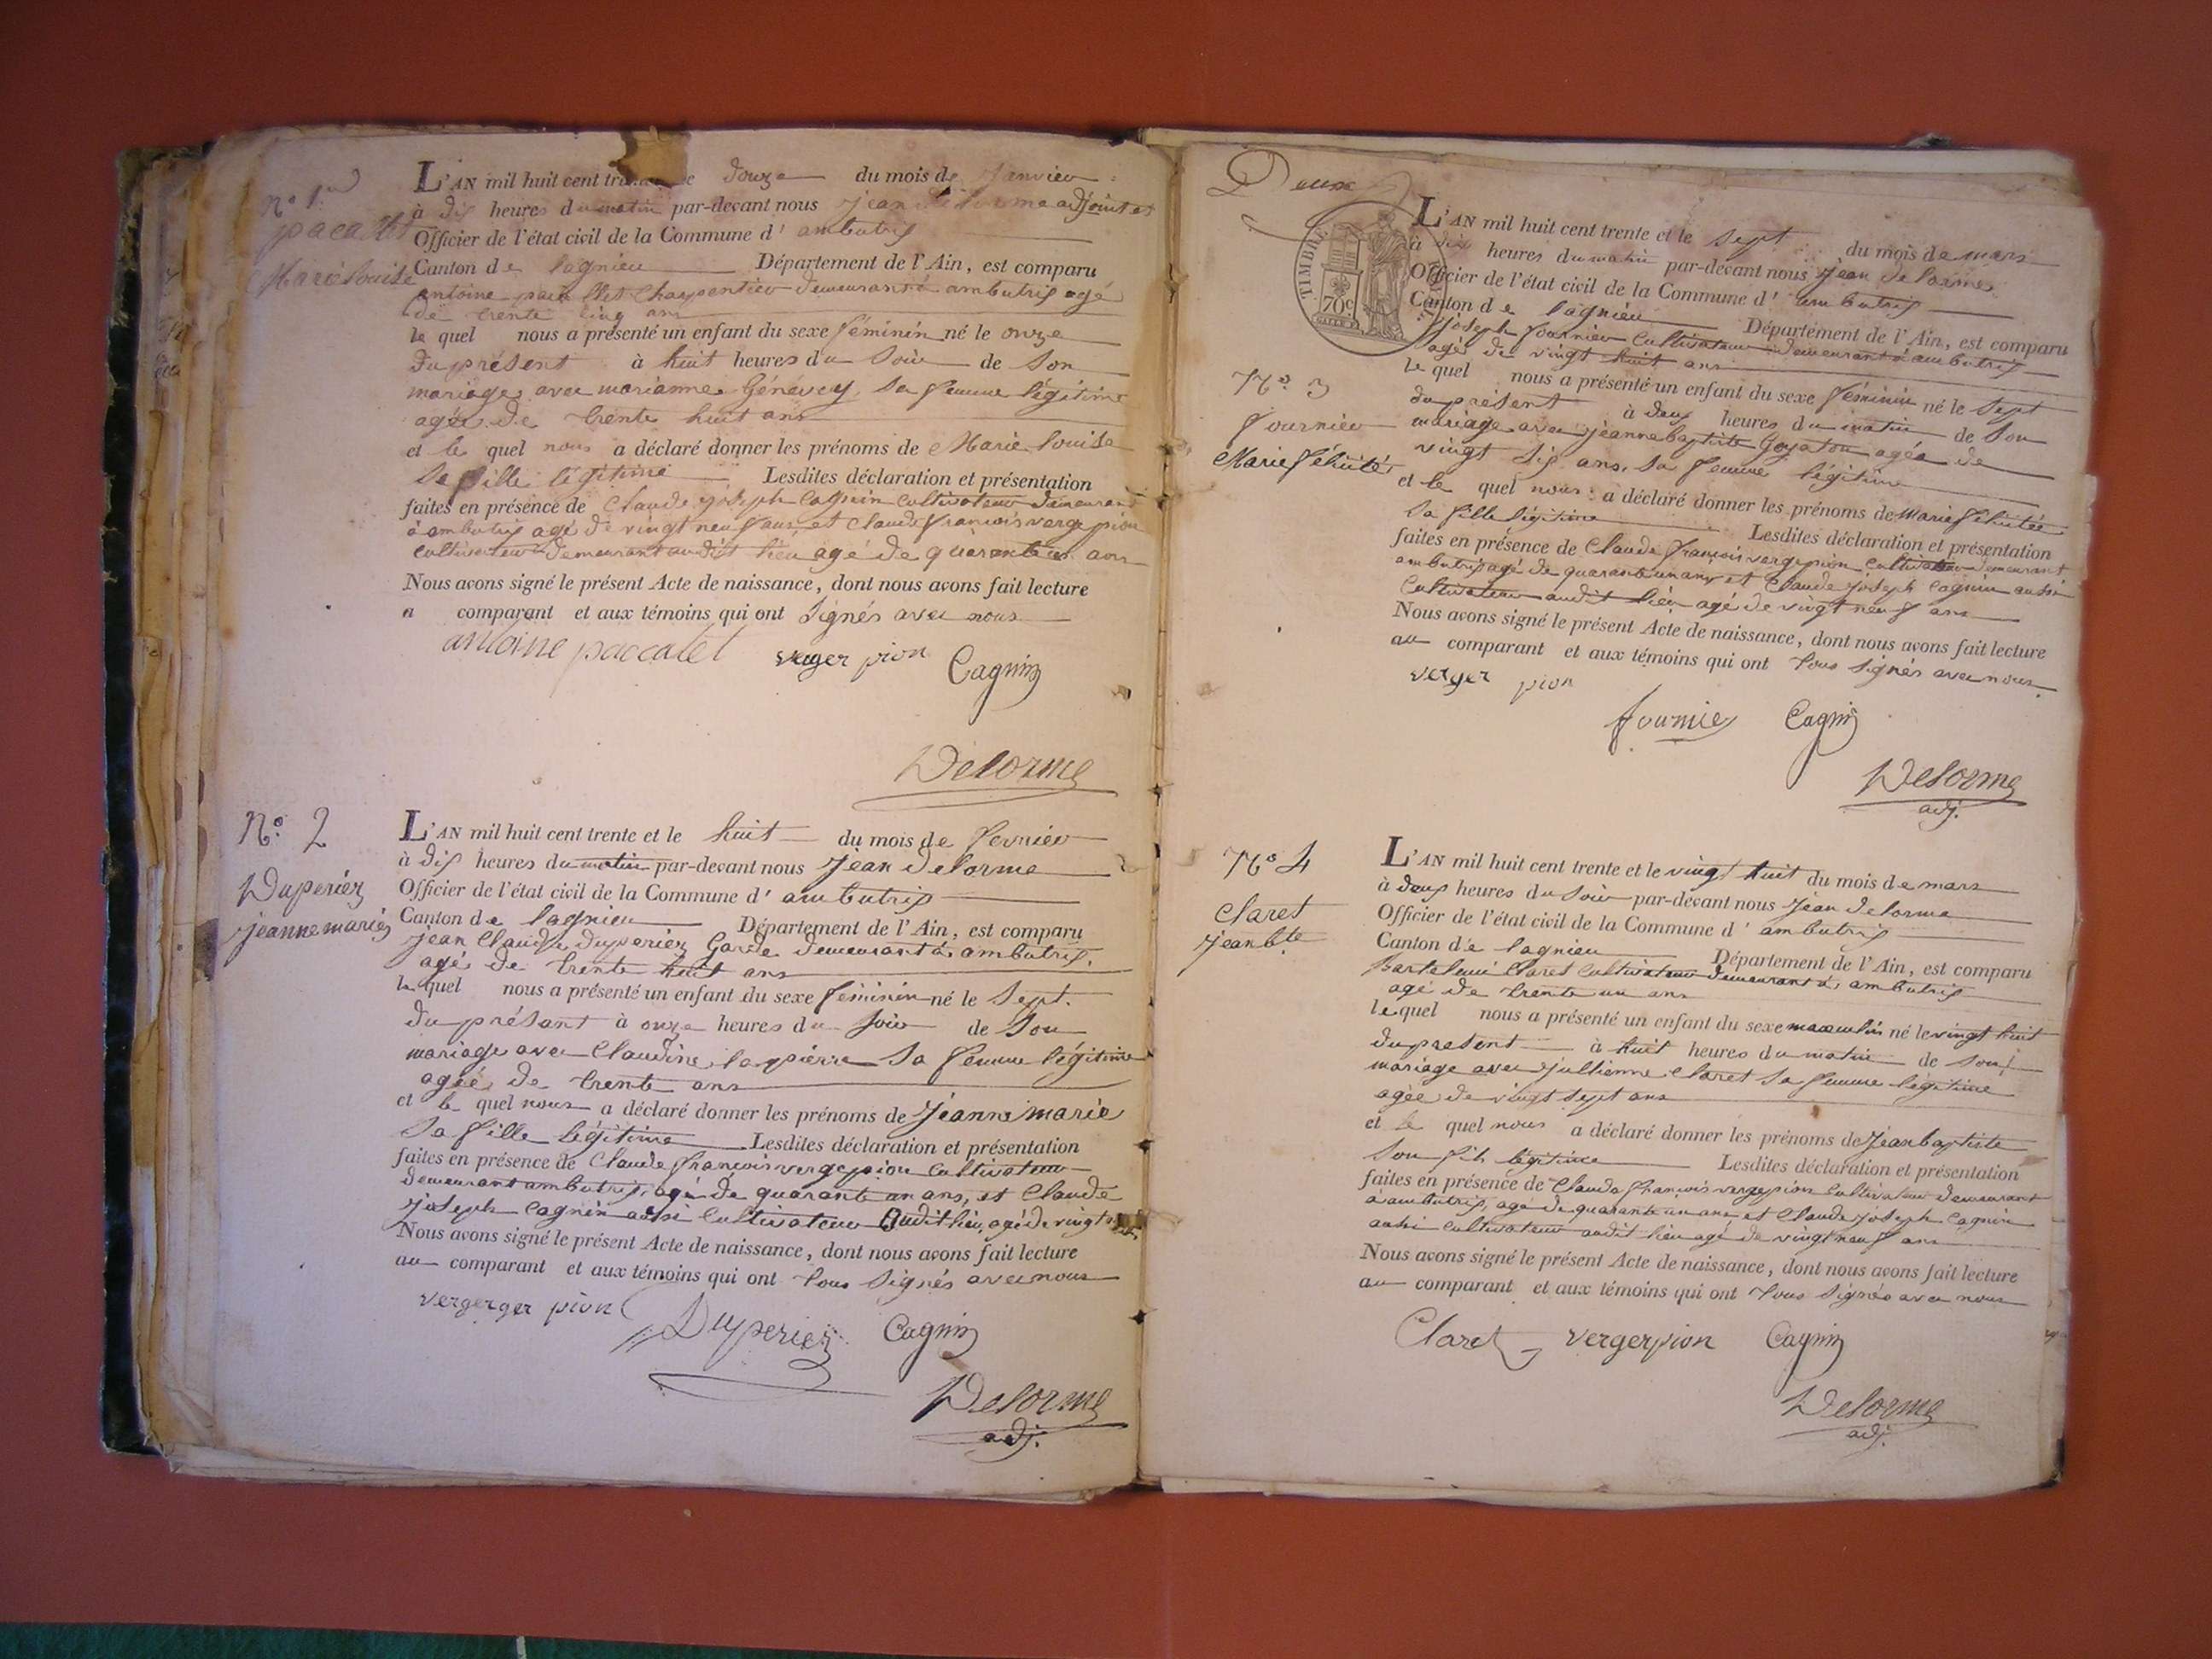 N° 1er
pacallet
Marie louise
L'AN mil huit cent trente et le douze du mois de Janvier
à dix heures du matin par-devant nous jean delorme adjoint et
Officier de l'état civil de la Commune d' ambutrix
Canton de lagnieu Département de l'Ain, est comparu
antoine pacallet Charpentier demeurant à ambutrix agé
de trente cinq ans
le quel nous a présenté un enfant du sexe féminin né le onze
du présent à huit heures du soir de son
mariage avec marianne Génévey sa femme légitime
agée de trente huit ans
et le quel nous a déclaré donner les prénoms de Marie louise
sa fille légitime Lesdites déclaration et présentation
faites en présence de Claude joseph Cagnin cultivateur demeurant
à ambutrix agé de vingt neuf ans et claude françois vergerpion
cultivateur demeurant audit lieu agé de quarante un ans
Nous avons signé le présent Acte de naissance, dont nous avons fait lecture
a comparant et aux témoins qui ont signés avec nous
antoine paccalet verger pion Cagnin
Delorme
N° 2
Duperiez
jeanne marie
L'AN mil huit cent trente et le huit du mois de fevrier
à dix heures du matin par-devant nous jean delorme
Officier de l'état civil de la Commune d' ambutrix
Canton de lagnieu Département de l'Ain, est comparu
jean Claude Duperiez Garde demeurant à ambutrix.
agé de trente huit ans
le quel nous a présenté un enfant du sexe féminin né le sept.
du présant à onze heures du soir de son
mariage avec Claudine lapierre sa femme légitime
agée de trente ans
et le quel nous a déclaré donner les prénoms de jeanne marie
sa fille légitime Lesdites déclaration et présentation
faites en présence de Claude françois vergepion cultivateur
demeurant ambutrix, agé de quarante un ans, et Claude
joseph Cagnin aussi cultivateur Audit lieu, agé de vingt
Nous avons signé le présent Acte de naissance, dont nous avons fait lecture
au comparant et aux témoins qui ont tous signés avec nous
vergerger pion Duperiez Cagnin
Delorme
adj.
Deux
TIMBRE
70c
L'AN mil huit cent trente et le sept du mois de mars
à dix heures du matin par-devant nous jean delorme
Officier de l'état civil de la Commune d' ambutrix
Canton de lagnieu Département de l'Ain, est comparu
joseph fournier Cultivateur demeurant à ambutrix
agé de vingt huit ans
N° 3
fournier
Marie félicitée
le quel nous a présenté un enfant du sexe féminin né le sept
du présent à deux heures du matin de son
mariage avec jeanne baptiste Goyaton agée de
vingt six ans, sa femme légitime
et le quel nous a déclaré donner les prénoms de Marie félicitée
sa fille légitime Lesdites déclaration et présentation
faites en présence de Claude françois vergepion cultivateur demeurant
ambutrix agé de quarante un ans et Claude joseph Cagnin aussi
Cultivateur audit lieu agé de vingt neuf ans
Nous avons signé le présent Acte de naissance, dont nous avons fait lecture
au comparant et aux témoins qui ont tous signés avec nous
verger pion
fournier Cagnin
Delorme
adj.
N° 4
Claret
jean bte
L'AN mil huit cent trente et le vingt huit du mois de mars
à deux heures du soir par-devant nous jean delorme
Officier de l'état civil de la Commune d' ambutrix
Canton de lagnieu Département de l'Ain, est comparu
Bartelemi Claret cultivateur demeurant à ambutrix
agé de trente un ans
le quel nous a présenté un enfant du sexe masculin né le vingt huit
du present à huit heures du matin de son
mariage avec jullienne Claret sa femme légitime
agée de vingt sept ans
et le quel nous a déclaré donner les prénoms de jean baptiste
son fils légitime Lesdites déclaration et présentation
faites en présence de Claude françois vergepion cultivateur demeurant
à ambutrix, agé de quarante un ans et Claude joseph Cagnin
aussi cultivateur audit lieu agé de vingt neuf ans
Nous avons signé le présent Acte de naissance, dont nous avons fait lecture
au comparant et aux témoins qui ont tous signés avec nous
Claret vergerpion Cagnin
Delorme
adj.